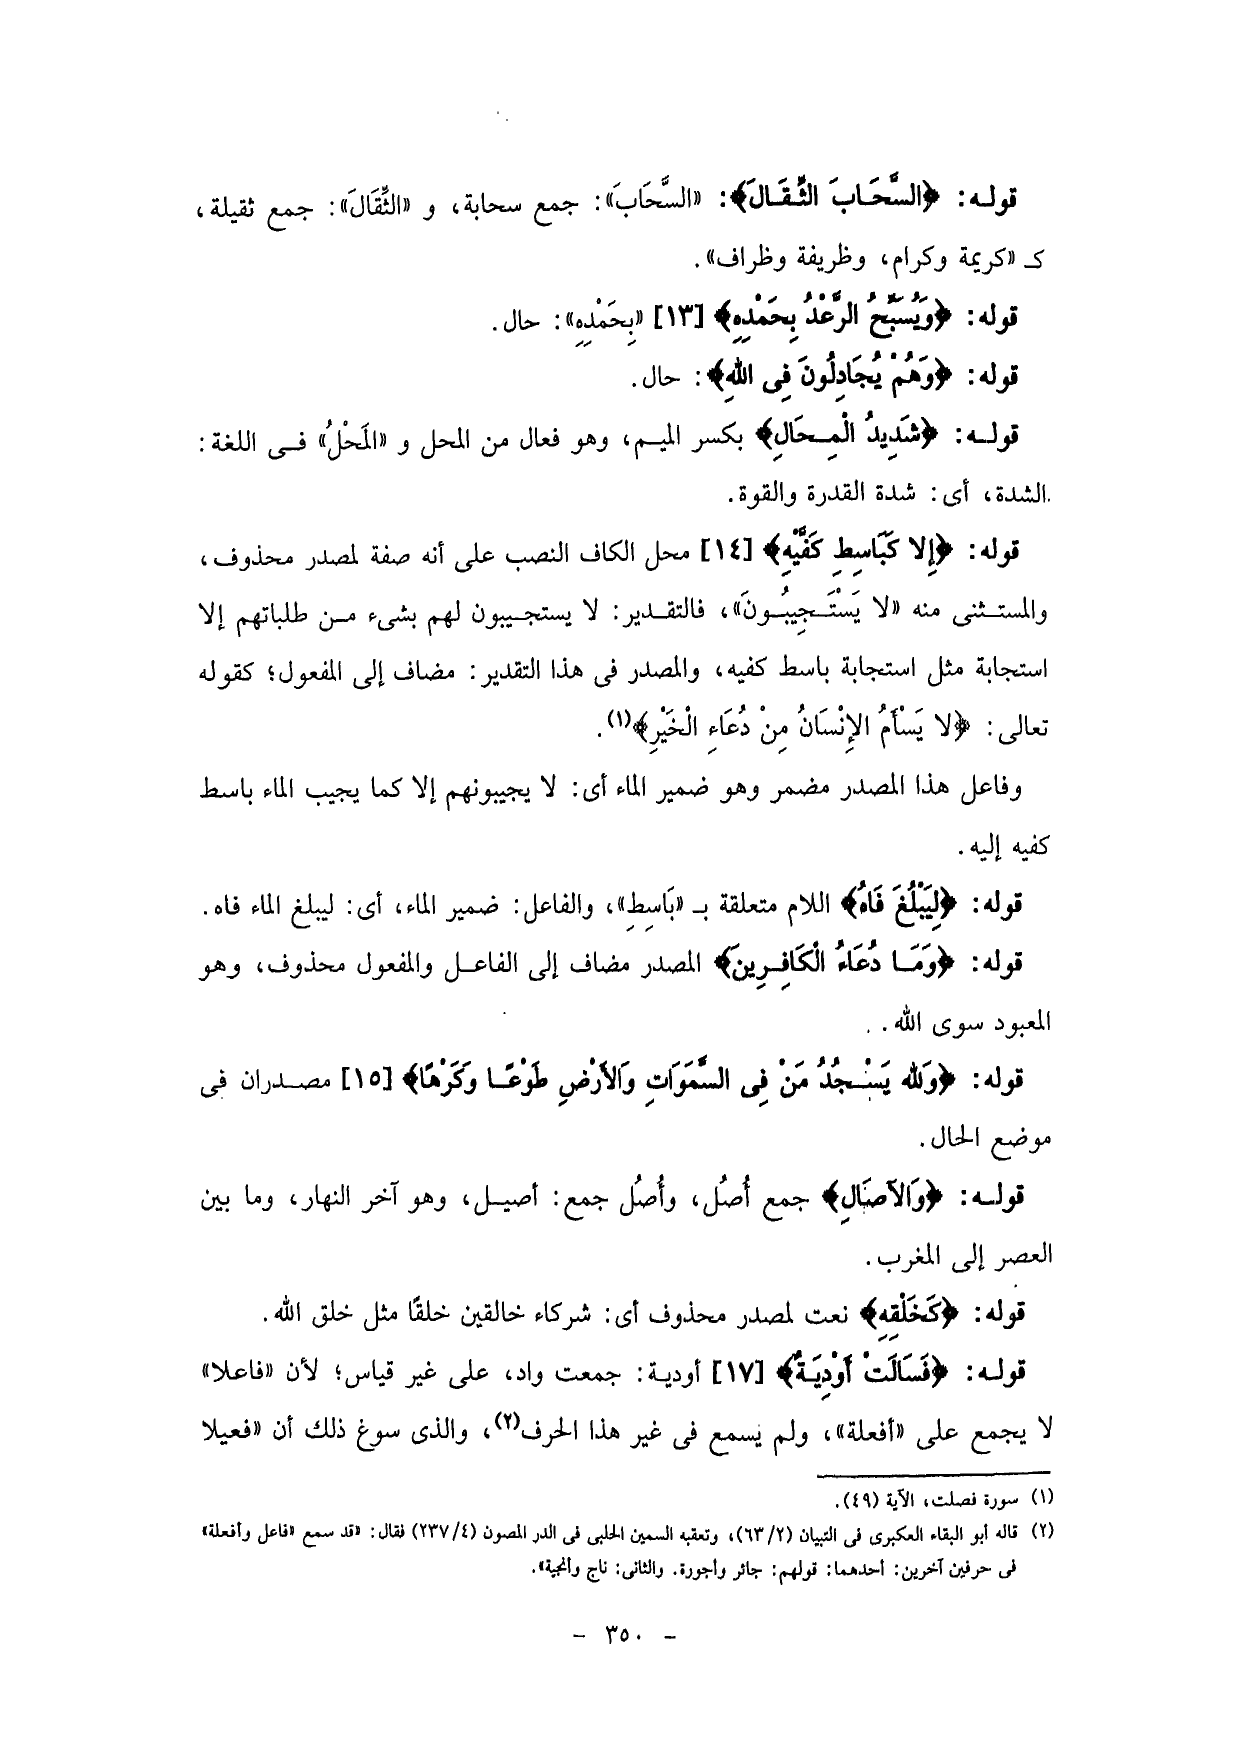 قوله: ﴿السَّحَابَ الثِّقَالَ﴾: «السَّحَابَ»: جمع سحابة، و «الثِّقَالَ»: جمع ثقيلة،
كـ «كريمة وكرام، وظريفة وظراف».
قوله: ﴿وَيُسَبِّحُ الرَّعْدُ بِحَمْدِهِ﴾ [١٣] «بِحَمْدِهِ»: حال.
قوله: ﴿وَهُمْ يُجَادِلُونَ فِى اللهِ﴾: حال.
قوله: ﴿شَدِيدُ الْمِحَالِ﴾ بكسر الميم، وهو فعال من المحل و «المَحْلُ» فى اللغة:
الشدة، أى: شدة القدرة والقوة.
قوله: ﴿إِلا كَبَاسِطِ كَفَّيْهِ﴾ [١٤] محل الكاف النصب على أنه صفة لمصدر محذوف،
والمستثنى منه «لا يَسْتَجِيبُونَ»، فالتقدير: لا يستجيبون لهم بشىء من طلباتهم إلا
استجابة مثل استجابة باسط كفيه، والمصدر فى هذا التقدير: مضاف إلى المفعول؛ كقوله
تعالى: ﴿لا يَسْأَمُ الإِنْسَانُ مِنْ دُعَاءِ الْخَيْرِ﴾(١).
وفاعل هذا المصدر مضمر وهو ضمير الماء أى: لا يجيبونهم إلا كما يجيب الماء باسط
كفيه إليه.
قوله: ﴿لِيَبْلُغَ فَاهُ﴾ اللام متعلقة بـ «بَاسِطِ»، والفاعل: ضمير الماء، أى: ليبلغ الماء فاه.
قوله: ﴿وَمَا دُعَاءُ الْكَافِرِينَ﴾ المصدر مضاف إلى الفاعل والمفعول محذوف، وهو
المعبود سوى الله.
قوله: ﴿وَلله يَسْجُدُ مَنْ فِى السَّمَوَاتِ وَالأَرْضِ طَوْعًا وَكَرْهًا﴾ [١٥] مصدران فى
موضع الحال.
قوله: ﴿وَالآصَالِ﴾ جمع أُصُل، وأُصُل جمع: أصيل، وهو آخر النهار، وما بين
العصر إلى المغرب.
قوله: ﴿كَخَلْقِهِ﴾ نعت لمصدر محذوف أى: شركاء خالقين خلقًا مثل خلق الله.
قوله: ﴿فَسَالَتْ أَوْدِيَةٌ﴾ [١٧] أودية: جمعت واد، على غير قياس؛ لأن «فاعلا»
لا يجمع على «أفعلة»، ولم يسمع فى غير هذا الحرف(٢)، والذى سوغ ذلك أن «فعيلا
(١) سورة فصلت، الآية (٤٩).
(٢) قاله أبو البقاء العكبرى فى التبيان (٦٣/٢)، وتعقبه السمين الحلبى فى الدر المصون (٢٣٧/٤) فقال: «قد سمع «فاعل وأفعلة»
فى حرفين آخرين: أحدهما: قولهم: جائر وأجورة. والثانى: ناج وأنجية».
- ٣٥٠ -